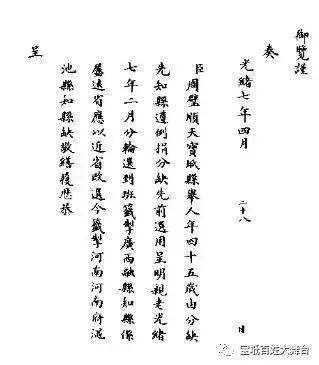 御覽謹
奏
光緒七年四月 二十八 日
臣周璧順天寶坻縣舉人年四十五歲由分缺
先知縣遵例捐分缺先前選用呈明親老光緒
七年二月分輪選到班籤掣廣西融縣知縣係
屬遠省應以近省改選今籤掣河南河南府澠
池縣知縣缺敬繕履歷恭
呈
宝坻百姓大舞台